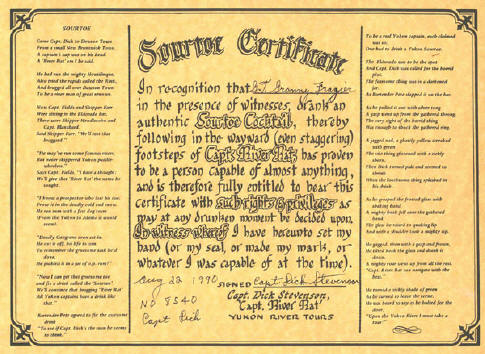 SOURTOE
Came Capt. Dick to Dawson Town
From a small New Brunswick Town.
A captain's cap was on his head
A "River Rat" am I he said.
He had run the mighty
And braved the rapids called the
And bragged all over Dawson Town
To be a river man of great renown.
Were Capt. Fields and Skipper Earr
Were sitting in the Eldorado bar.
There were Skipper Henderson and
Capt. Blanchard.
Said Skipper Earr, "We'll test this
braggart."
"He may've run some famous rivers
But never skippered Yukon
Says Capt. Fields, "I have a thought
We'll give this "River Rat" the name he
sought.
"I knew a prospector who lost his toe
Froze it in the deadly cold and snow.
He ran non with a fast dog team
(From the Yukon to Alaska it would
seem).
"Deadly Gangrene soon set in.
He cut it off, his life to win
To remember the gruesome task he'd
done.
He pickled it in a jar of o.p. rum!"
"Now I can get that gruesome toe
and fix a drink called the "Sourtoe"
We'll convince that bragging "River Rat"
All Yukon captains have a drink like
that."
Bartender Pete agreed to fix the awesome
drink
"To see if Capt. Dick's the man he seems
to think."
Sourtoe Certificate
In recognition that G.T. Granny Frazier
in the presence of witnesses, drank an
authentic Sourtoe Cocktail, thereby
following in the wayward (even staggering)
footsteps of Capt. River Rat, has proven
to be a person capable of almost anything,
and is therefore fully entitled to bear this
certificate with such rights & privileges as
may at any drunken moment be decided upon.
In witness whereof I have hereunto set my
hand (or my seal, or made my mark, or
whatever I was capable of at the time).
Aug 22 1990 SIGNED Capt. Dick Stevenson
NO 8540 Capt. Dick Stevenson,
Capt. Dick "Capt. River Rat"
YUKON RIVER TOURS
To be a real Yukon captain, each claimed
was so,
One had to drink a Yukon Sourtoe.
The Eldorado was to be the spot
And Capt. Dick was called for the horrid
plot.
The fearsome thing was in a darkened
jar.
As Bartender Pete slapped it on the bar.
As he pulled it out with silver tong
A gasp went up from the gathered throng.
The very sight of the horrid thing
Was enough to shock the gathered ring.
A jagged nail, a ghostly yellow streaked
with green
The vile thing glistened with a sickly
sheen.
Then Dick turned pale and seemed to
shrink
When the loathsome thing splashed in
his drink.
As he grasped the frosted glass with
shaking hand
A mighty hush fell over the gathered
band.
The glass he raised to quaking lip
And with a shudder took a mighty sip.
He gagged, then with a gasp and frown,
He tilted back the glass and drank it
down.
A mighty roar went up from all the rest,
"Capt. River Rat" can navigate with the
best."
He turned a sickly shade of green
As he turned to leave the scene.
He was heard to say as he bolted for the
door,
"Upon the Yukon River I must take a
tour"